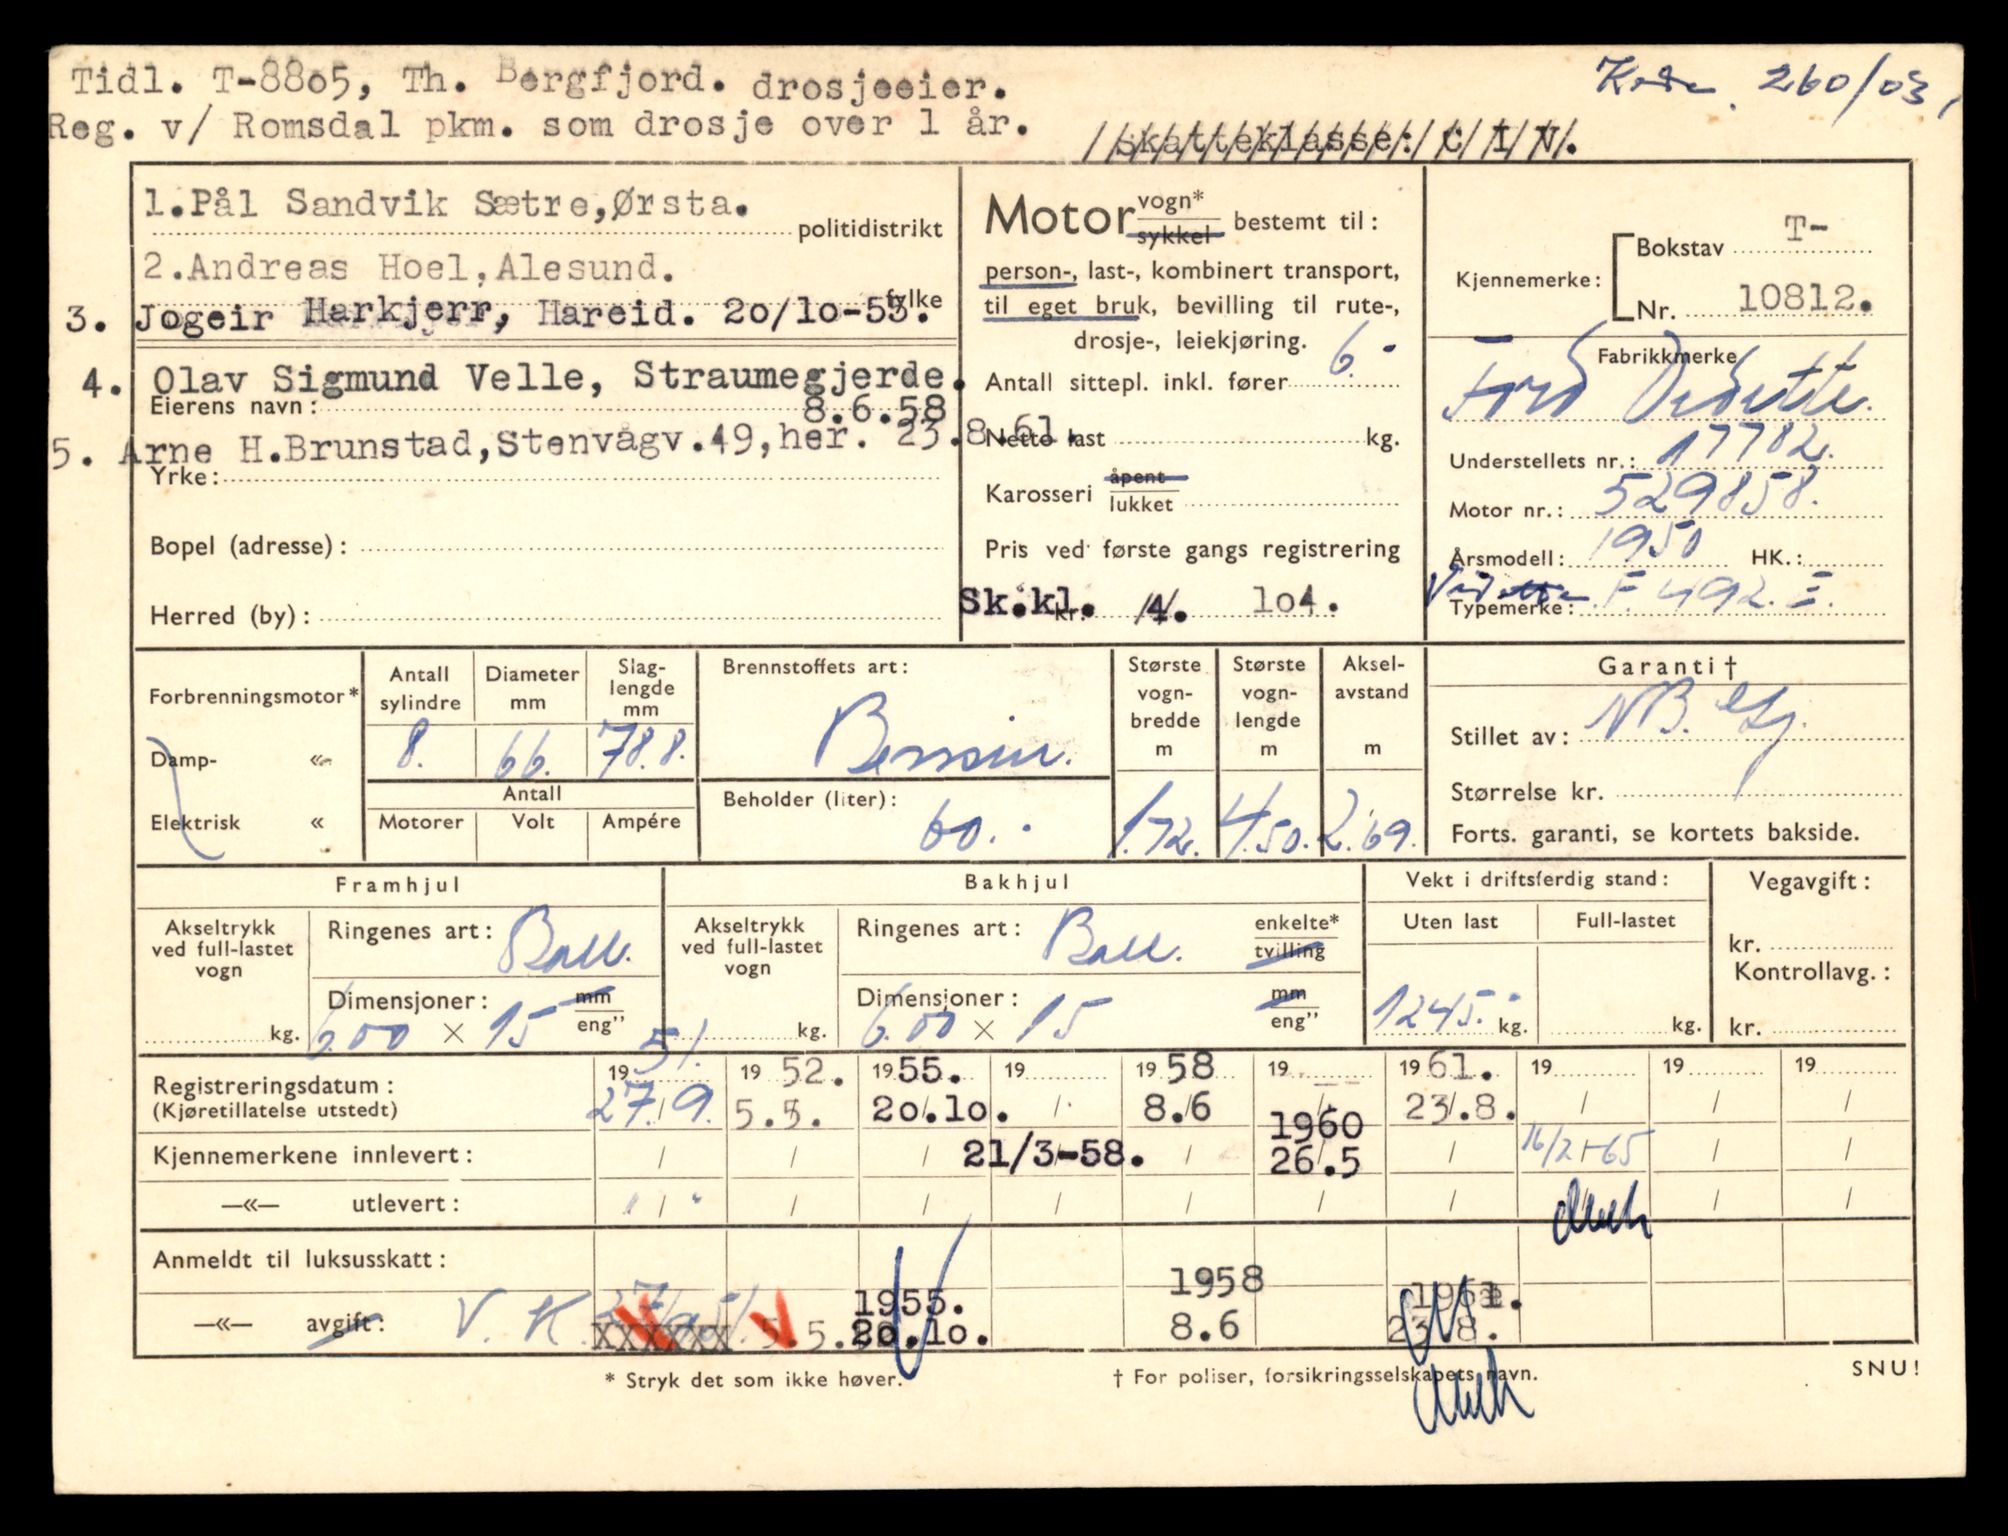 Tidl. T-8805, Th. Bergfjord. drosjeeier.
260/03
Reg. v/ Romsdal pkm. som drosje over 1 år.
/skatteklasse: C/I/V/.
1.Pål Sandvik Sætre,Ørsta.
politidistrikt
2.Andreas Hoel,Alesund.
fylke
3. Jogeir Harkjerr, Hareid. 20/10-55.
4. Olav Sigmund Velle, Straumegjerde.
Eierens navn: 8.6.58
5. Arne H.Brunstad,Stenvågv.49,her. 23.8.61.
Yrke:
Bopel (adresse):
Herred (by):
Motor vogn* sykkel bestemt til:
person-, last-, kombinert transport,
til eget bruk, bevilling til rute-,
drosje-, leiekjøring.
Antall sittepl. inkl. fører 6.-
Netto last kg.
Karosseri åpent lukket
Pris ved første gangs registrering
Sk.kl. kr. 4. 104.
Kjennemerke: Bokstav T-
Nr. 10812.
Fabrikkmerke
Ford Vedette
Understellets nr.: 17782.
Motor nr.: 529858.
Årsmodell: 1950 HK.:
Typemerke: Vedette F. 492. E.
Forbrenningsmotor*
Damp- «
Elektrisk «
Antall sylindre
8.
Diameter mm
66.
Slag-lengde mm
78.8.
Antall
Motorer Volt Ampére
Brennstoffets art:
Bensin.
Beholder (liter):
60.-
Største vogn-bredde m
1.72.
Største vogn-lengde m
4.50.
Aksel-avstand m
2.69.
Garanti †
Stillet av: NB.
Størrelse kr.
Forts. garanti, se kortets bakside.
Framhjul
Akseltrykk ved full-lastet vogn
kg.
Ringenes art: Ball.
Dimensjoner: mm eng"
6.00 × 15
Bakhjul
Akseltrykk ved full-lastet vogn
kg.
Ringenes art: Ball. enkelte* tvilling
Dimensjoner: mm eng"
6.00 × 15
Vekt i driftsferdig stand:
Uten last Full-lastet
1245.- kg. kg.
Vegavgift:
kr.
Kontrollavg.:
kr.
Registreringsdatum: 19 51. 19 52. 19 55. 19 19 58 19 19 61. 19 19 19
(Kjøretillatelse utstedt) 27/9. 5.5. 20.10. 8.6 23.8.
Kjennemerkene innlevert: 21/3-58. 1960 26.5 16/2-65
—«— utlevert:
Anmeldt til luksusskatt:
—«— avgift: V. K. 27/9 51. xxxxxx 5.5. 1955. 20.10. 1958 8.6 1961. 23.8.
* Stryk det som ikke høver.
† For poliser, forsikringsselskapets navn.
SNU!